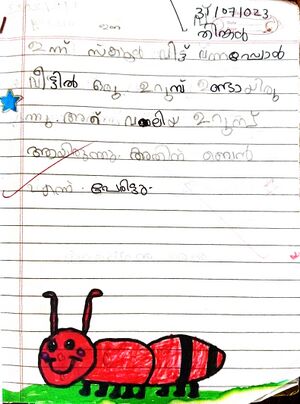 31/07/023
തിങ്കൾ
ഇന്ന് സ്കൂൾ വിട്ട് വന്നപ്പോൾ
വീട്ടിൽ ഒരു ഉറുമ്പ് ഉണ്ടായിരു
ന്നു. അത് വലിയ ഉറുമ്പ്
ആയിരുന്നു. അതിന് ഞാൻ
എന്ന് പേരിട്ടു.